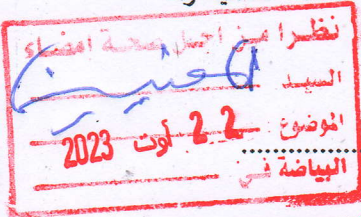 نظرا من اجل صحة امضاء
السيد
الموضوع 22 أوت 2023
البياضة في: